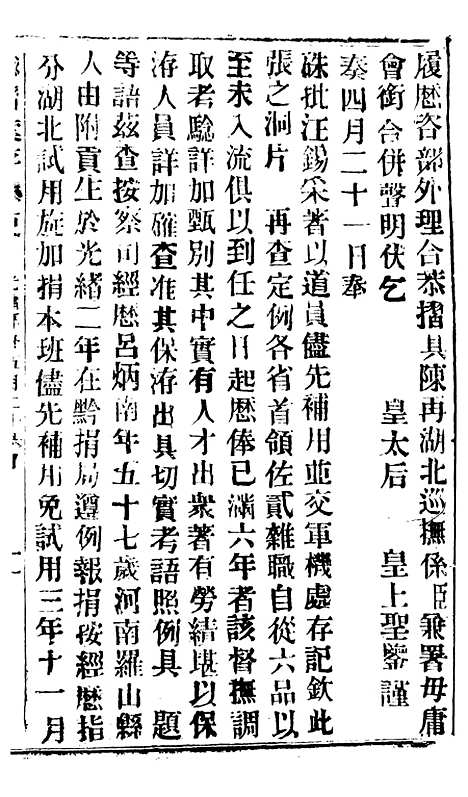 履歷咨部外理合恭摺具陳再湖北巡撫係臣兼署毋庸
會銜合併聲明伏乞　皇太后　皇上聖鑒謹
奏四月二十一日奉
硃批汪錫采著以道員儘先補用並交軍機處存記欽此
張之洞片　再查定例各省首領佐貳雜職自從六品以
至未入流俱以到任之日起歷俸已滿六年者該督撫調
取考驗詳加甄別其中實有人才出衆著有勞績堪以保
洊人員詳加確查准其保洊出具切實考語照例具　題
等語茲查按察司經歷呂炳南年五十七歲河南羅山縣
人由附貢生於光緒二年在黔捐局遵例報捐按經歷指
分湖北試用旋加捐本班儘先補用免試用三年十一月